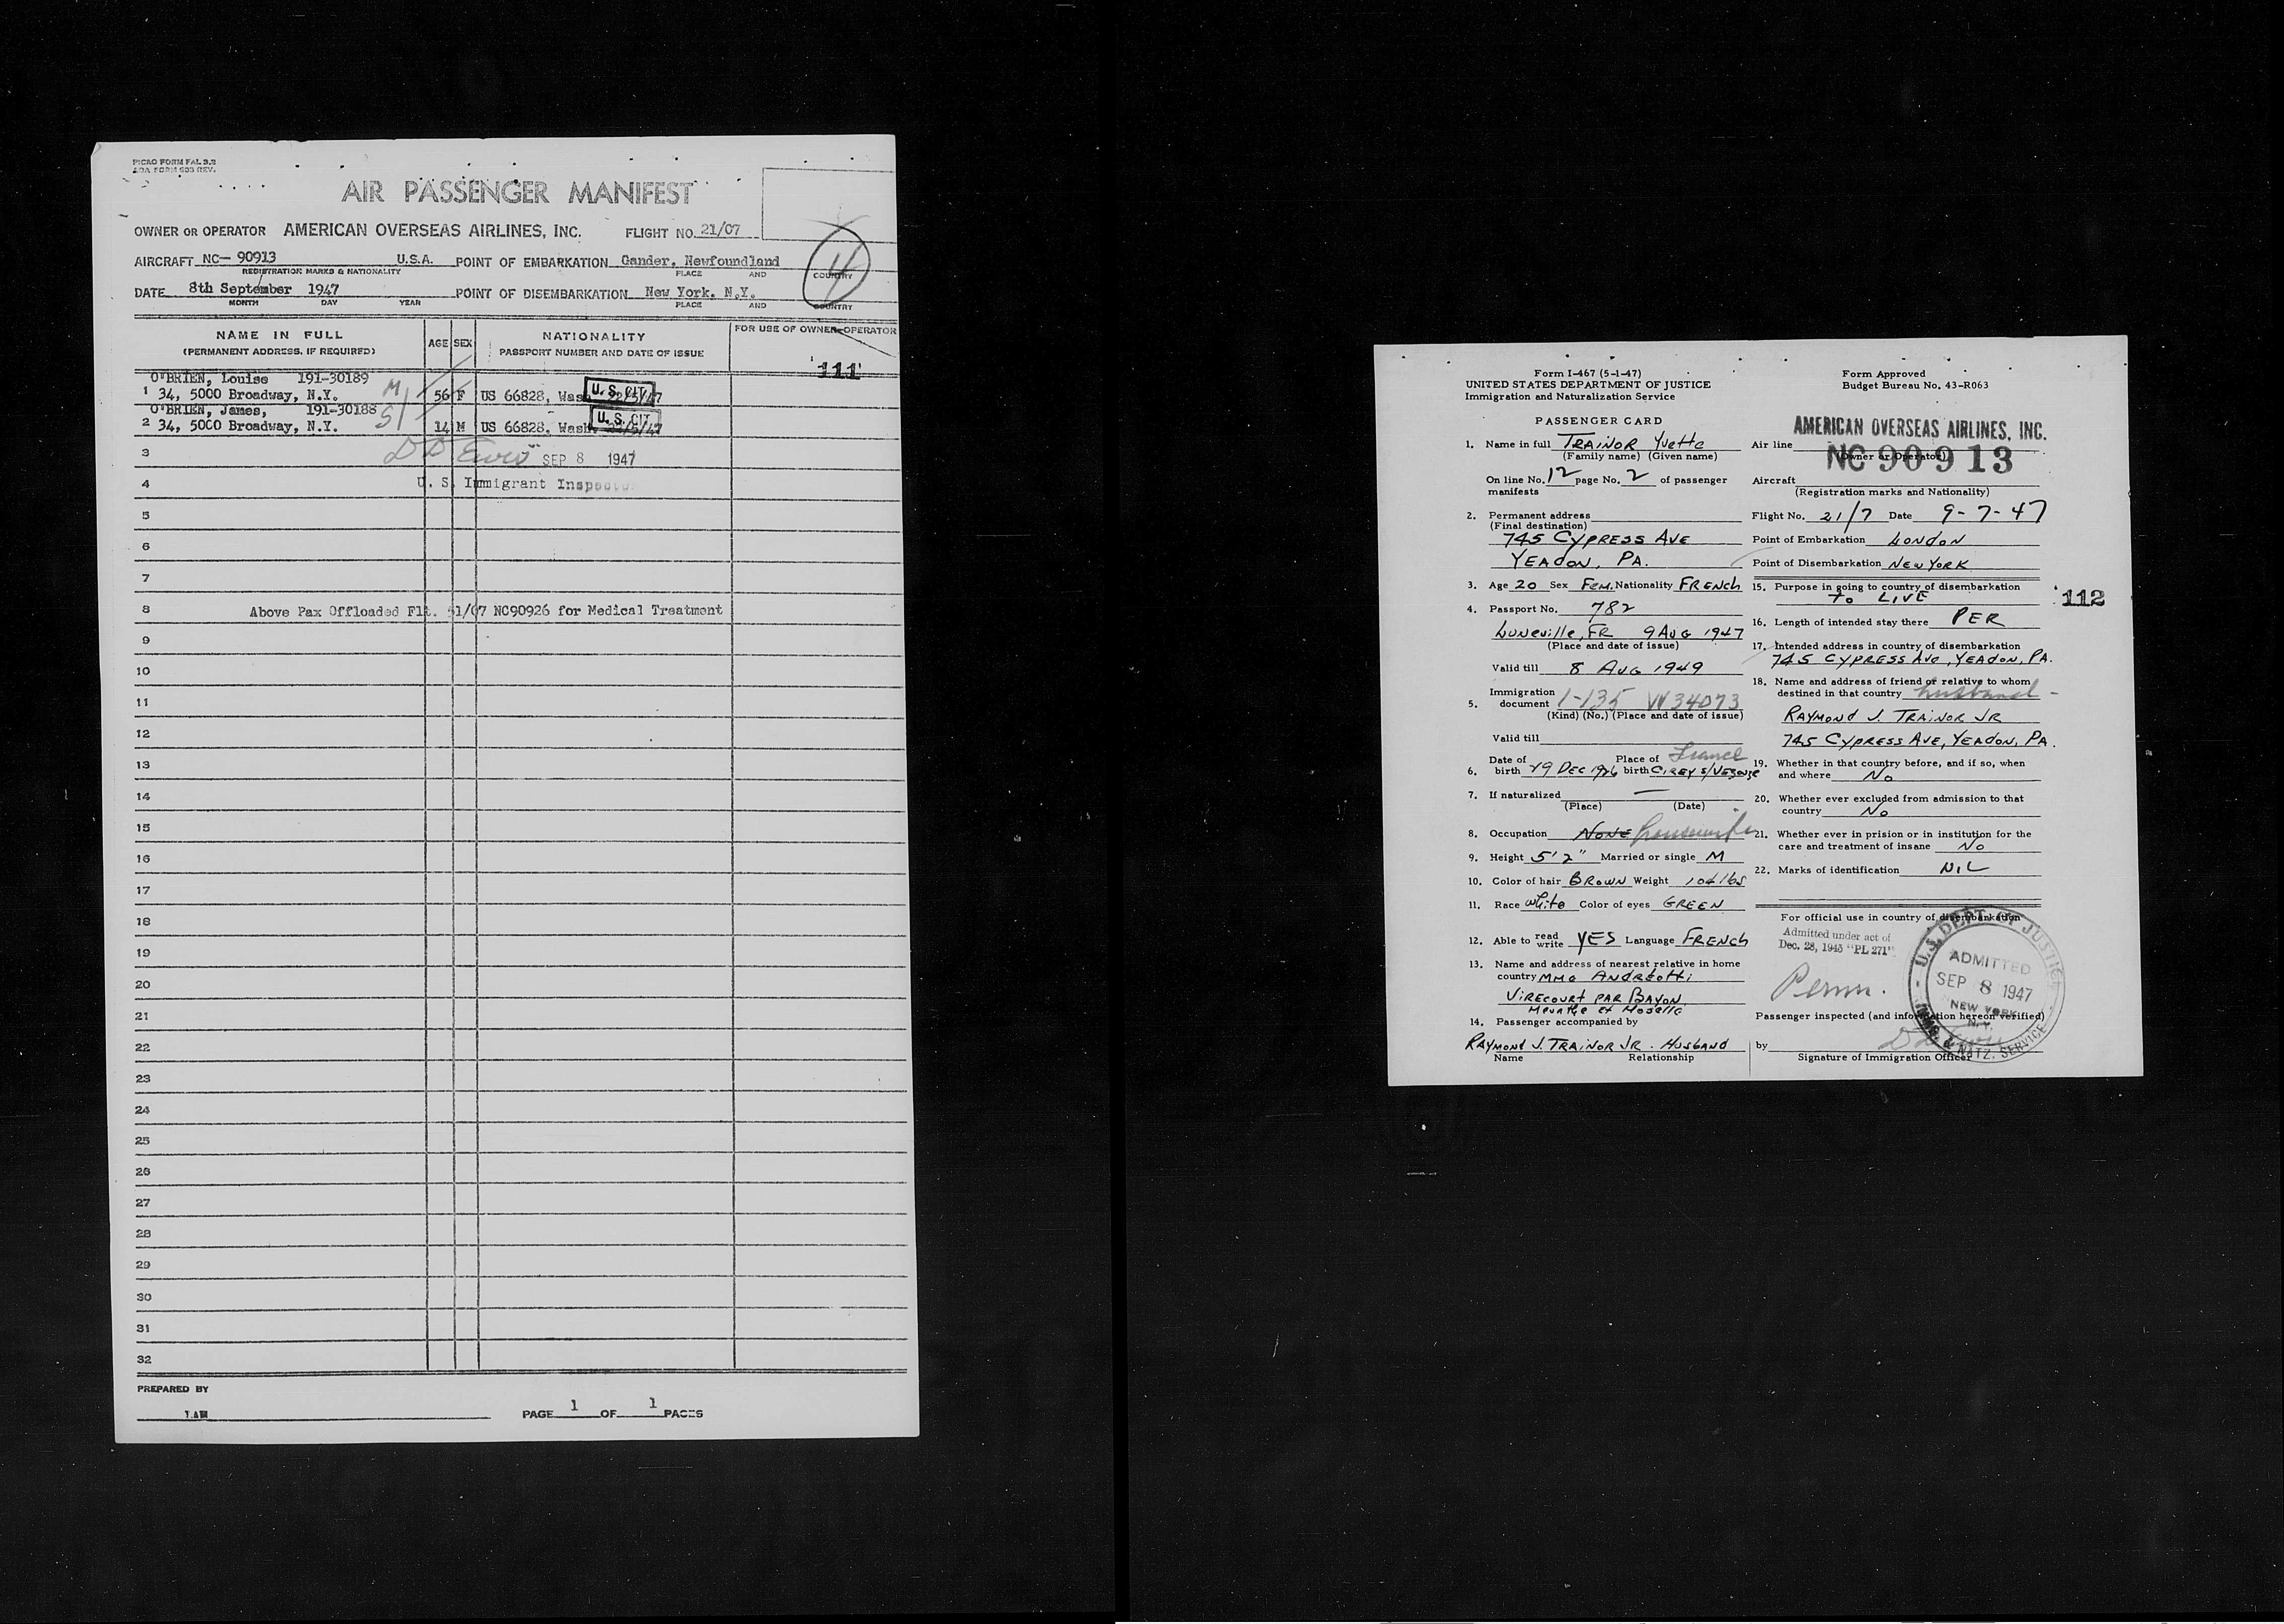 PICAO FORM FAL 3.2
AOA FORM 603 REV.
AIR PASSENGER MANIFEST
OWNER OR OPERATOR AMERICAN OVERSEAS AIRLINES, INC. FLIGHT NO. 21/07
AIRCRAFT NC- 90913 U.S.A. POINT OF EMBARKATION Gander, Newfoundland
REGISTRATION MARKS & NATIONALITY PLACE AND COUNTRY
4
DATE 8th September 1947 POINT OF DISEMBARKATION New York. N.Y.
MONTH DAY YEAR PLACE AND COUNTRY
NAME IN FULL AGE SEX NATIONALITY FOR USE OF OWNER-OPERATOR
(PERMANENT ADDRESS, IF REQUIRED) PASSPORT NUMBER AND DATE OF ISSUE
111
O'BRIEN, Louise 191-30189 M
1 34, 5000 Broadway, N.Y. 56 F US 66828, Wash. U. S. CIT.
O'BRIEN, James, 191-30188 S
2 34, 5000 Broadway, N.Y. 14 M US 66828, Wash. U. S. CIT.
3 SEP 8 1947
4 U. S. Immigrant Inspector
5
6
7
8 Above Pax Offloaded Flt. 51/07 NC90926 for Medical Treatment
9
10
11
12
13
14
15
16
17
18
19
20
21
22
23
24
25
26
27
28
29
30
31
32
PREPARED BY
PAGE 1 OF 1 PAGES
Form I-467 (5-1-47)
UNITED STATES DEPARTMENT OF JUSTICE
Immigration and Naturalization Service
Form Approved
Budget Bureau No. 43-R063
PASSENGER CARD
1. Name in full TRAINOR Yvette
(Family name) (Given name)
On line No. 12 page No. 2 of passenger
manifests
2. Permanent address
(Final destination)
745 CYPRESS AVE
YEADON, PA.
3. Age 20 Sex Fem. Nationality FRENCH
4. Passport No. 782
Luneville, FR 9 AUG 1947
(Place and date of issue)
Valid till 8 AUG 1949
Immigration
5. document I-135 W34073
(Kind) (No.) (Place and date of issue)
Valid till
Date of Place of France
6. birth 29 DEC 1926 birth CIREY S/VEZOUZE
7. If naturalized —
(Place) (Date)
8. Occupation NONE housewife
9. Height 5'2" Married or single M
10. Color of hair BROWN Weight 104 lbs
11. Race White Color of eyes GREEN
12. Able to read write YES Language FRENCH
13. Name and address of nearest relative in home
country MME ANDREOTTI
VIRECOURT PAR BAYON
Meurthe et Moselle
14. Passenger accompanied by
RAYMOND J. TRAINOR JR. HUSBAND
Name Relationship
AMERICAN OVERSEAS AIRLINES, INC.
Air line
(Owner or Operator)
NC 90913
Aircraft
(Registration marks and Nationality)
Flight No. 21/7 Date 9-7-47
Point of Embarkation LONDON
Point of Disembarkation NEW YORK
15. Purpose in going to country of disembarkation
To LIVE
112
16. Length of intended stay there PER
17. Intended address in country of disembarkation
745 CYPRESS AVE, YEADON, PA.
18. Name and address of friend or relative to whom
destined in that country husband -
RAYMOND J. TRAINOR JR
745 CYPRESS AVE, YEADON, PA.
19. Whether in that country before, and if so, when
and where No
20. Whether ever excluded from admission to that
country No
21. Whether ever in prision or in institution for the
care and treatment of insane No
22. Marks of identification NIL
For official use in country of disembarkation
Admitted under act of
Dec. 28, 1945 "PL 271"
Perm.
U. S. DEPT. OF JUSTICE
ADMITTED
SEP 8 1947
NEW YORK
N.Y.
IMM. & NATZ. SERVICE
Passenger inspected (and information hereon verified)
by
Signature of Immigration Officer